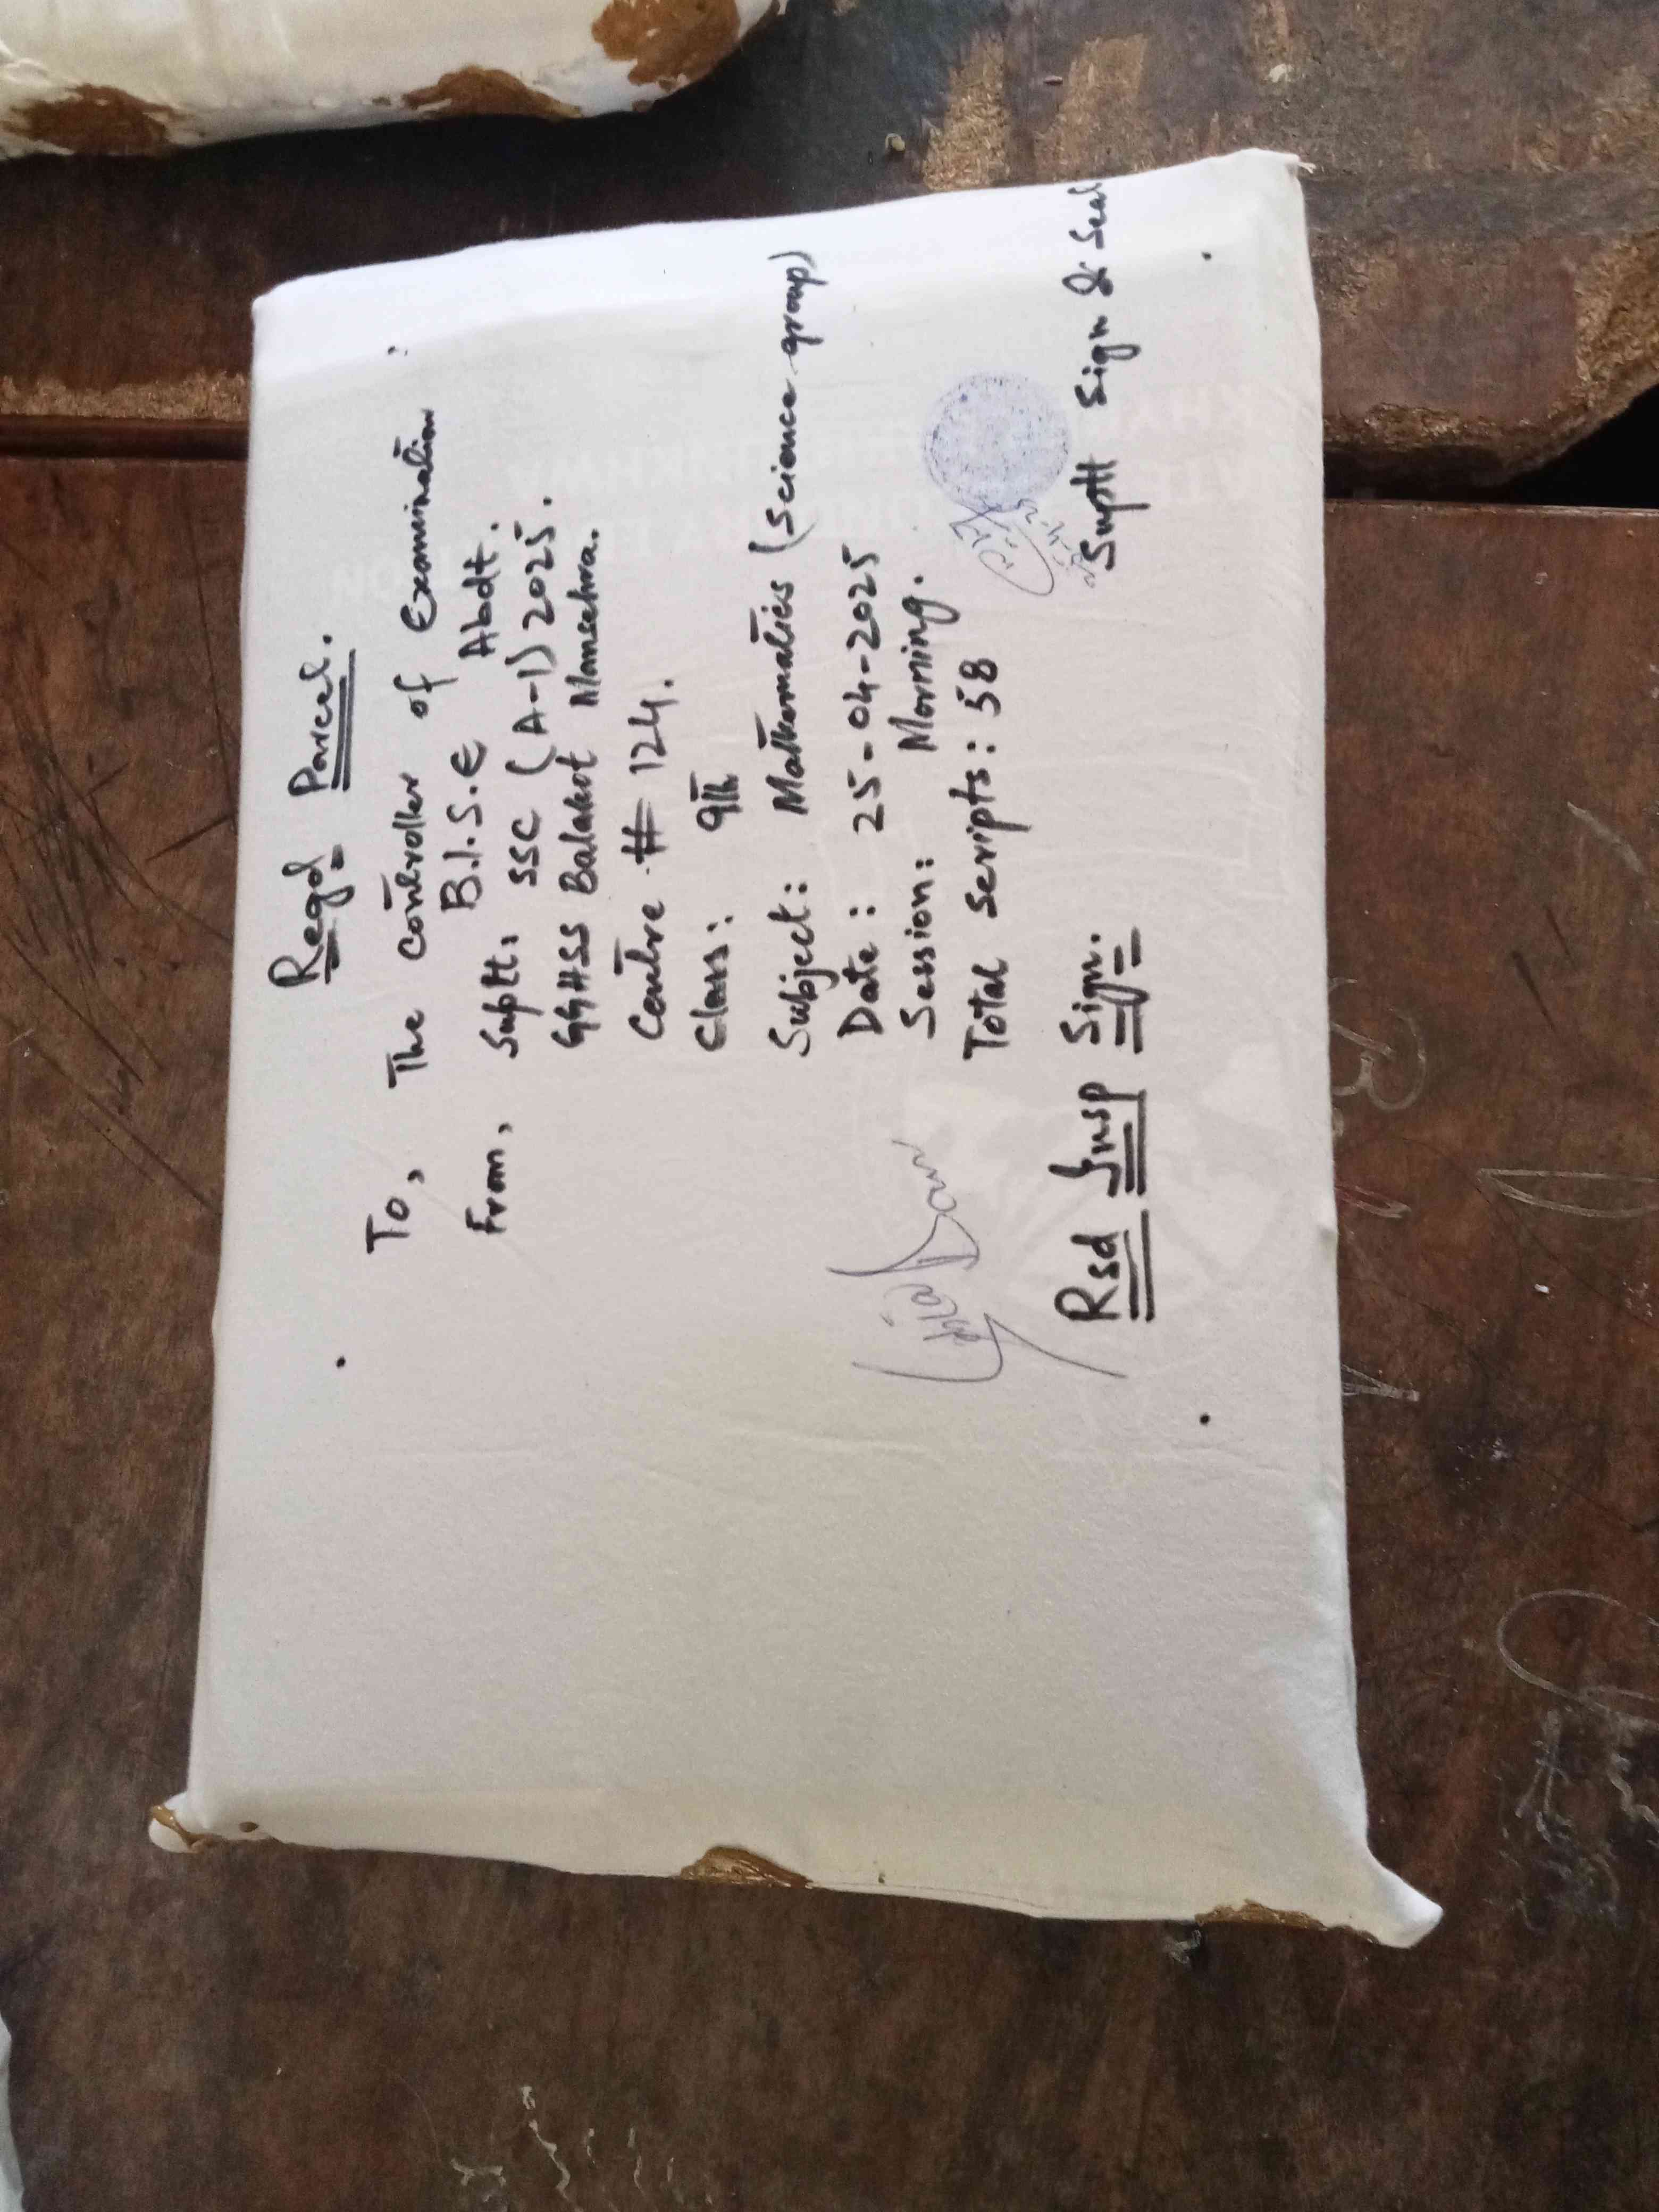 Regd Parcel.
To, The Controller of Examination
B.I.S.E Abdt.
From, Suptt: SSC (A-1) 2025.
GGHSS Balakot Mansehra.
Centre # 124.
Class: 9th
Subject: Mathematics (Science group)
Date: 25-04-2025
Session: Morning.
Total scripts: 58
Rsd Insp Sign.
Suptt Sign & Seal